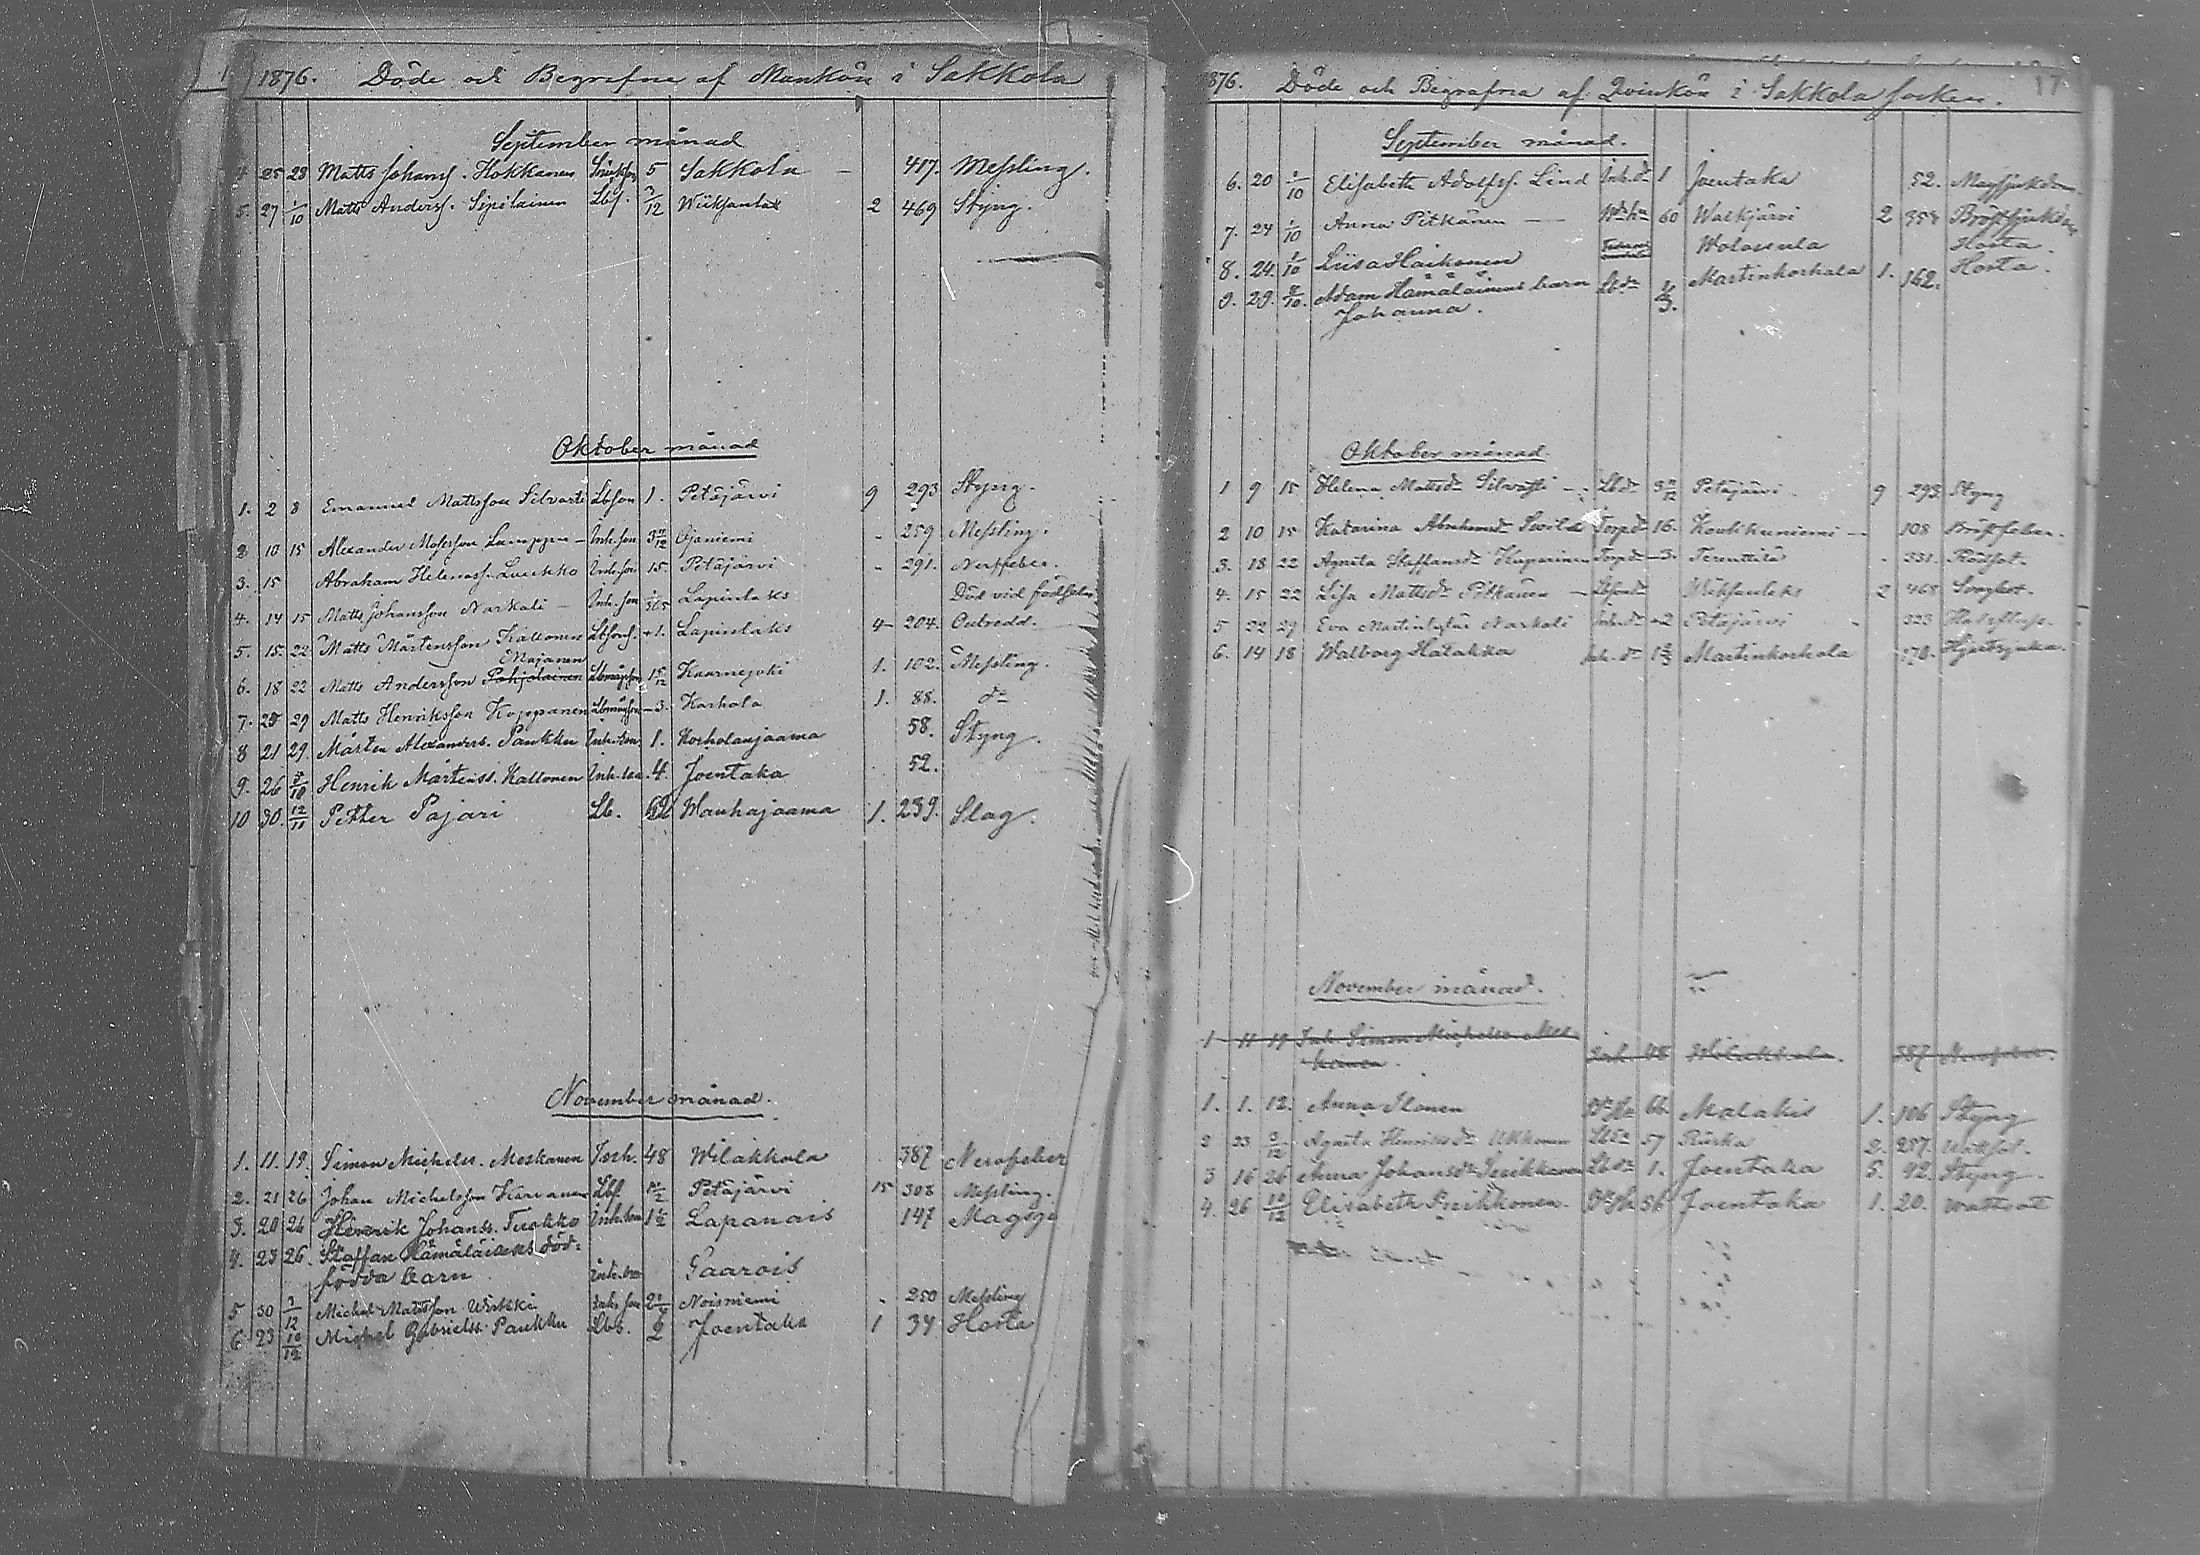 1876. Döde och Begrafne af Mankön i Sakkola
September månad
4. 25 28 Matts Johanss. Hokkanen 5 Sakkola - 417. Messling.
5. 27 1/10 Matts Anderss. Sipiläinen Lbs. /12 Wiiksanlax 2 469 Styng.
Oktober månad
1. 2 8 Emanuel Mattsson Silvasti Lbson 1. Petäjärvi 9 293 Styng.
2. 10 15 Alexander Mosesson Lumppu - Inh.son 3 /12 Ojaniemi - 259 Messling.
3. 15 Abraham Helenass. Luukko Inh.son 15. Petäjärvi - 291. Nerffeber.
4. 14 15 Matts Johansson Narkali - Inh.son /365 Lapinlaks Död vid födseln
5. 15. 22 Matts Mårtensson Kattonen Lbsons. 1. Lapinlaks 4 204. Outredd.
Majanen
6. 18 22 Matts Andersson Pohjolainen 1 /12 Kaarnejoki 1. 102. Messling.
7. 25 29 Matts Henriksson Koppanen - 3. Koskola 1. 88. do
8 21 29. Mårten Alexanders. Paukku Inh.son 1. Koskolanjaama 58. Styng.
9. 26 /10 Henrik Mårtenss. Kattonen Inh.son 4. Joentaka 52.
10 30. 12/11 Petter Pajari Lb. 62 Wanhajaama 1. 239. Slag.
November månad.
1. 11. 19. Simon Michelss. Meskanen Inh. 48 Wilakkala 387 Nervfeber
2. 21 26 Johan Michelsson Karvanen Lbs. 1 /12 Petäjärvi 15 308 Messling.
3. 20 26 Henrik Johanss. Tuokko Inh.son 1 1/2 Lapanais 147 Magsj.
4. 23 26. Staffan Hämäläinens död=
födda barn Inh.son Saarois
5 30 3/12 Michel Mattsson Wirkki Inh.son 2 Noisniemi - 250 Messling
6. 23 10/12 Michel Gabrielss. Paukku Lbs. Joentaka 1 34 Hosta
1876. Döde och Begrafna af Qvinkön i Sakkola socken. 17
September månad.
6. 20 1/10 Elisabeth Adolfss. Lind Inh.dr 1 Joentaka 52. Magsjukdom
7. 24 1/10 Anna Pitkänen - 60 Walkjärvi 2 354 Bröstsjukdom
8. 24. 1/10 Liisa Haikonen Wolossula Hosta
9. 29. 8/10. Adam Hämäläinens barn Lbdr Martinkoskola 1. 162. Hosta.
Johanna.
Oktober månad.
1 9 15 Helena Mattsdr Silvasti - Lbdr 3 /12 Petäjärvi 9 293. Styng
2 10 15 Katarina Abrahamsdr Torpdr 16. Koukkuniemi - 108 Bröstfeber.
3. 18 22 Agneta Staffansdr Kuparinen Torpdr - 3. Terenttilä - 331. Rödsot.
4. 15 22 Lisa Mattsdr Pitkänen - Wiiksanlaks 2 465
5 22 29 Eva Martinlytär Narkali Inh.dr 2 Petäjärvi - 323
6. 14 18 Walborg Hatakka Inh.dr 1 Martinkoskola 170. Hjertsjuka.
November månad.
1 11 19 Inh Simon Michelss. Mes-
kanen Inh 48 Wilakkala. 387 Nervfeber.
1. 1. 12. Anna Ilonen 66. Matakis 1. 106 Styng
2 23 3/12 Agneta Henriksdr Ukkonen 57 Riiska 2. 257. Wattsot.
3 16 26 Anna Johansdr Lbdr 1. Joentaka 5. 92. Styng.
4. 26 10/12 Elisabeth 56 Joentaka 1. 20. Wattsot